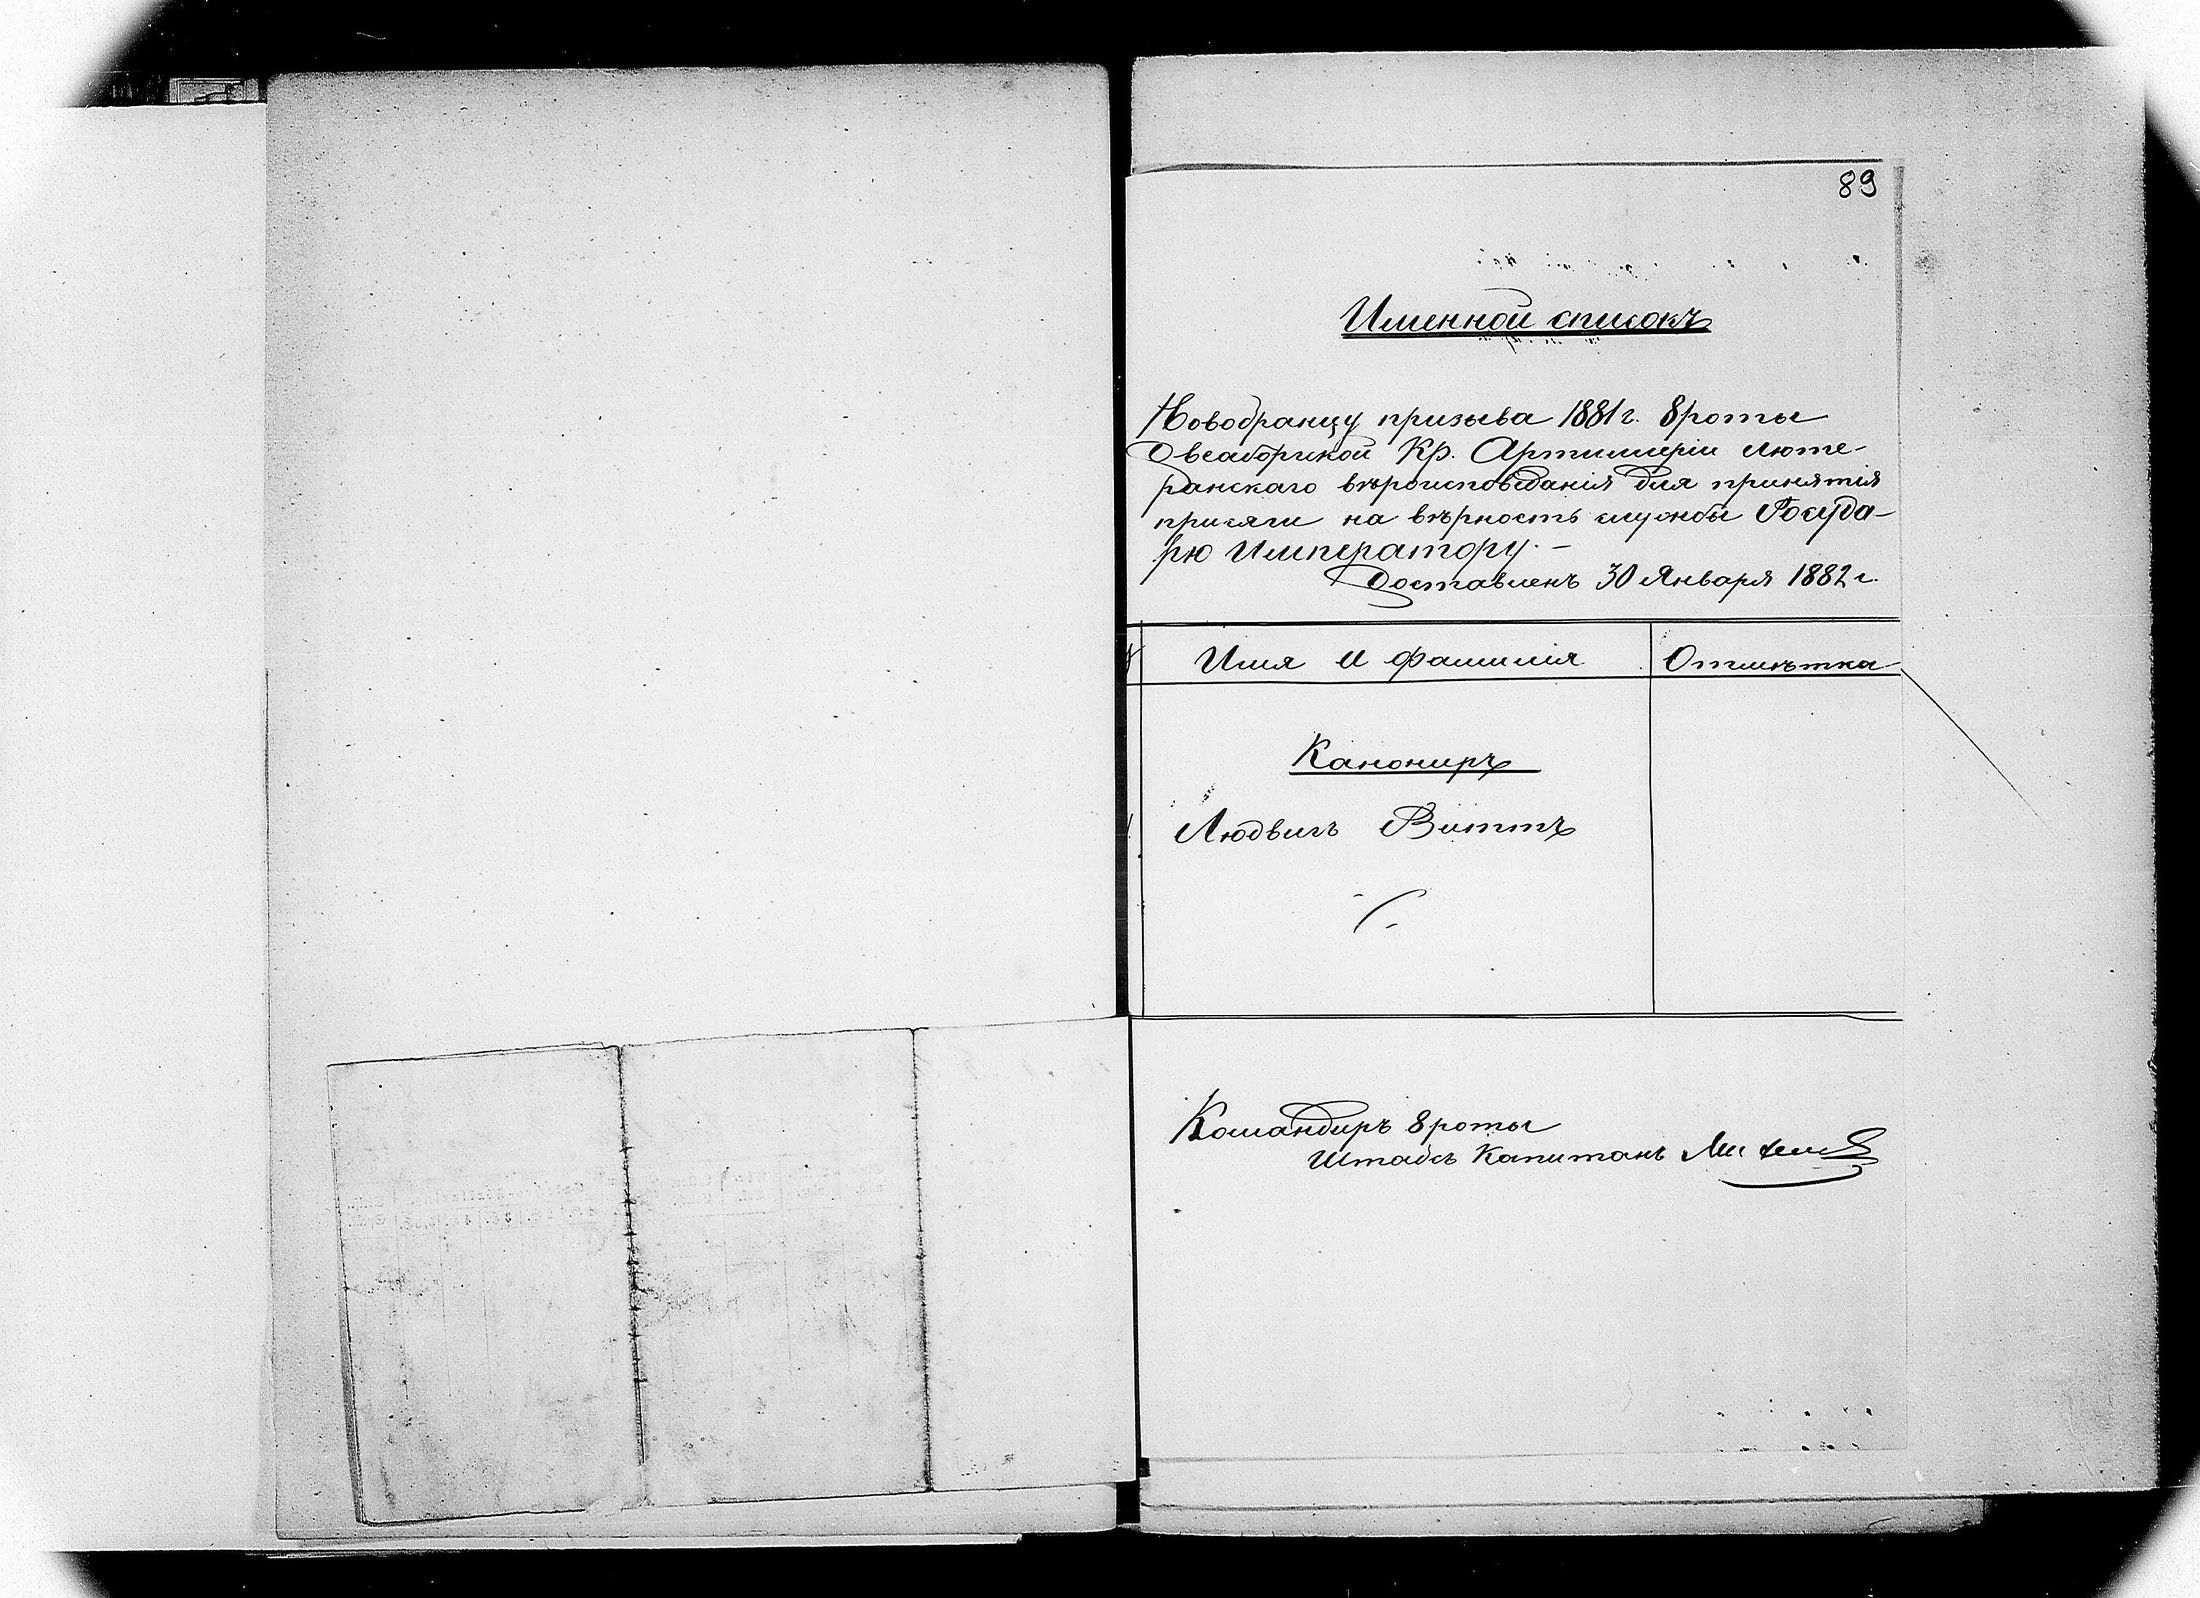 89
Именной списокъ
Новобранцу призыва 1881 г. 8 роты
Свеаборгской Кр. Артиллеріи люте-
ранскаго вѣроисповѣданія для принятія
присяги на вѣрность службы Госуда-
рю Императору. –
Доставленъ 30 Января 1882 г.
Имя и фамилія Отмѣтка
Канониръ
1 Людвигъ Виттъ
Командиръ 8 роты
Штабсъ Капитанъ